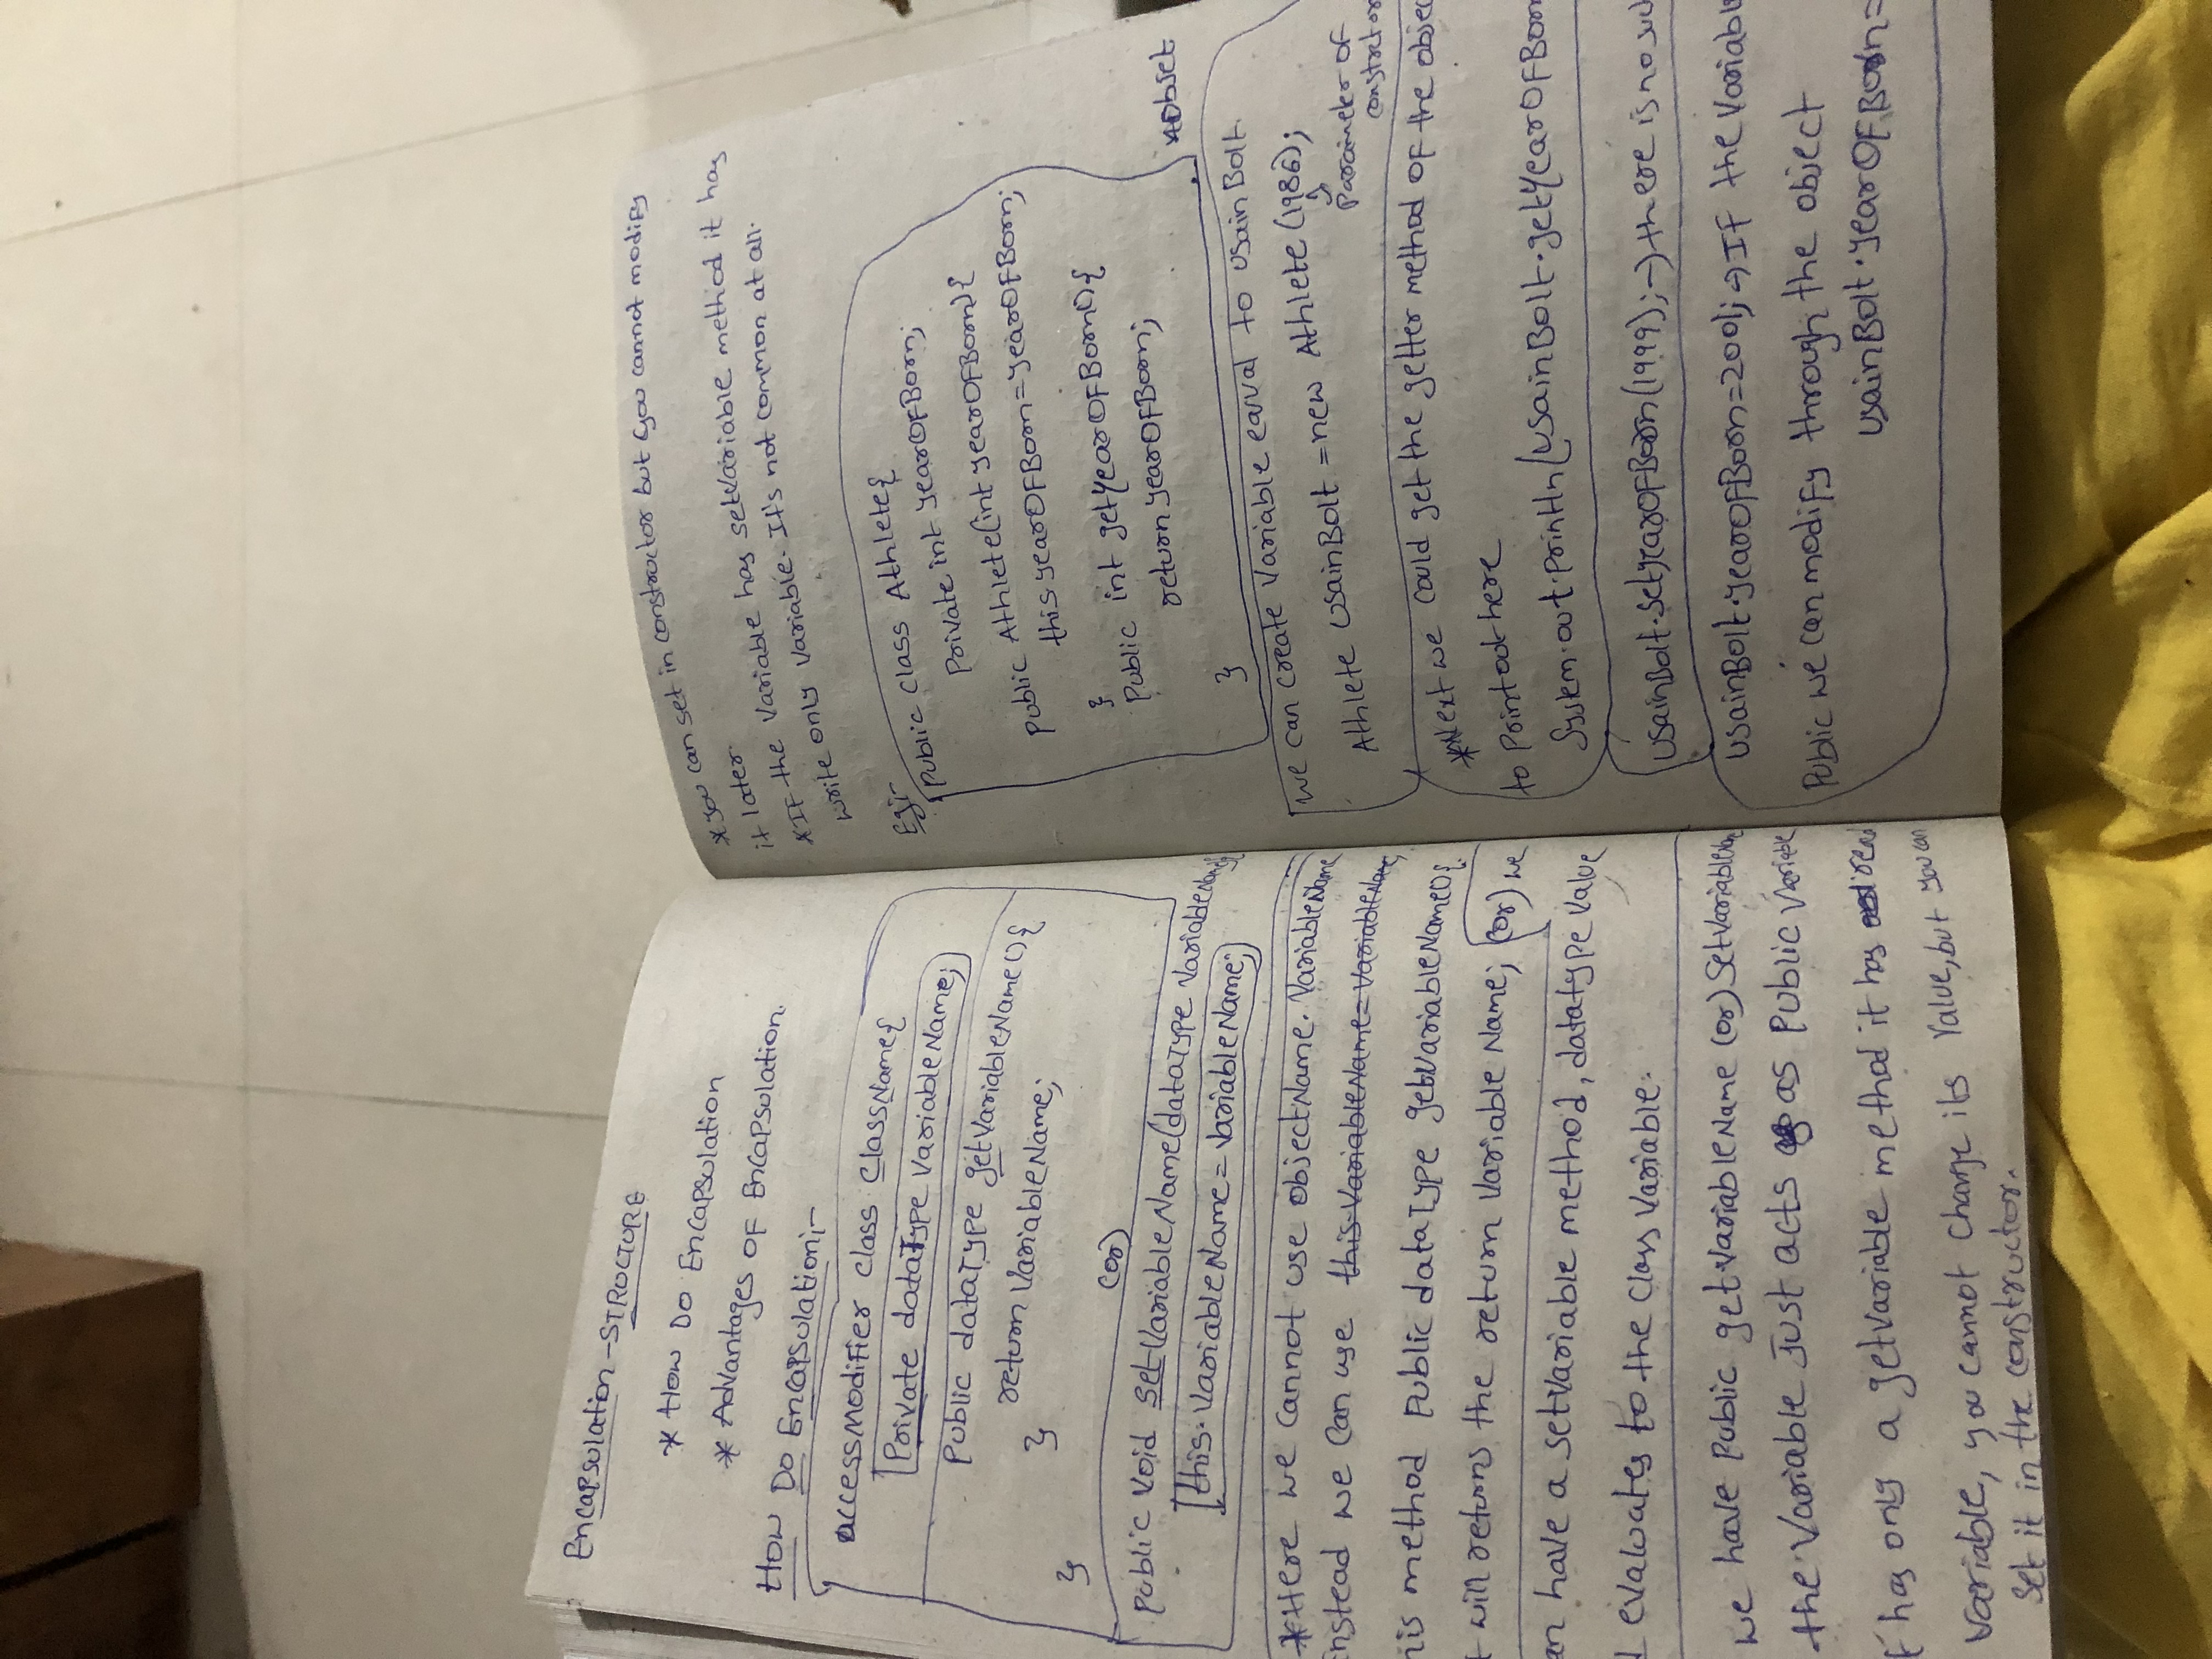 Encapsulation - STRUCTURE
* How Do Encapsulation
* Advantages OF Encapsulation.
How Do Encapsulation:-
accessModifier class ClassName{
Private dataType VariableName;
Public dataType getVariableName(){
return VariableName;
}
}
(or)
Public void setVariableName(dataType VariableName){
this.VariableName = VariableName;
* Here we cannot use objectName. VariableName
instead we can use this.VariableName = VariableName
his method Public dataType getVariableName(){
t will returns the return Variable Name; (or) we
an have a setVariable method, datatype Value
d evaluates to the class Variable.
we have Public getVariableName (or) SetVariableName
the Variable Just acts as Public Variable
f has only a getvariable method it has read
variable, you cannot change its Value, but you can
set it in the constructor.
* you can set in constructor but you cannot modify
it later.
* IF the Variable has setVariable method it has
write only Variable. It's not common at all.
Eg:-
Public class Athlete{
Private int yearOfBorn;
Public Athlete(int yearOfBorn){
this.yearOfBorn = yearOfBorn;
}
Public int getYearOfBorn(){
return yearOfBorn;
}
we can create Variable eaual to Usain Bolt.
Athlete UsainBolt = new Athlete (1986);
Parameter of
constretor
* Next we could get the getter method of the objec
to Printout here
System.out.println(UsainBolt.getYearOfBorn
UsainBolt.SetyearOfBorn(1999); → there is no suc
UsainBolt.yearOfBorn=2001; → If the Variable
Public we can modify through the object
UsainBolt.yearOfBorn=